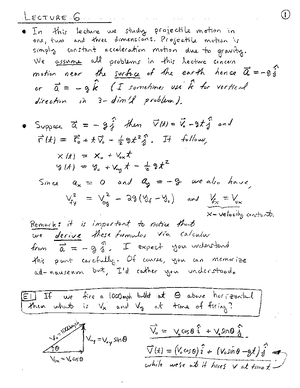 LECTURE 6
①
• In this lecture we study projectile motion in
one, two and three dimensions. Projectile motion is
simply constant acceleration motion due to gravity.
We assume all problems in this lecture concern
motion near the surface of the earth hence a⃗ = -g ĵ
or a⃗ = -g k̂ (I sometimes use k̂ for vertical
direction in 3-dim'l problems).
• Suppose a⃗ = -g ĵ then v⃗(t) = v⃗₀ - gt ĵ and
r⃗(t) = r⃗₀ + t v⃗₀ - ½ g t² ĵ. It follows,
x(t) = x₀ + v₀ₓt
y(t) = y₀ + v₀yt - ½ g t²
Since aₓ = 0 and ay = -g we also have,
vfy² = v₀y² - 2g(yf - y₀) and vfx = v₀x
x-velocity constant.
Remark: it is important to notice that
we derive these formulas via calculus
from a⃗ = -g ĵ. I expect you understand
this point carefully. Of course, you can memorize
ad-nauseum but, I'd rather you understood.
E1 If we fire a 1000mph bullet at θ above horizontal
then what is vₓ and vy at time of firing?
v₀ = 1000mph
v₀y = v₀ sinθ
θ
v₀ₓ = v₀cosθ
v⃗₀ = v₀cosθ î + v₀ sinθ ĵ
v⃗(t) = (v₀cosθ) î + (v₀ sinθ - gt) ĵ
while we're at it here's v at time t